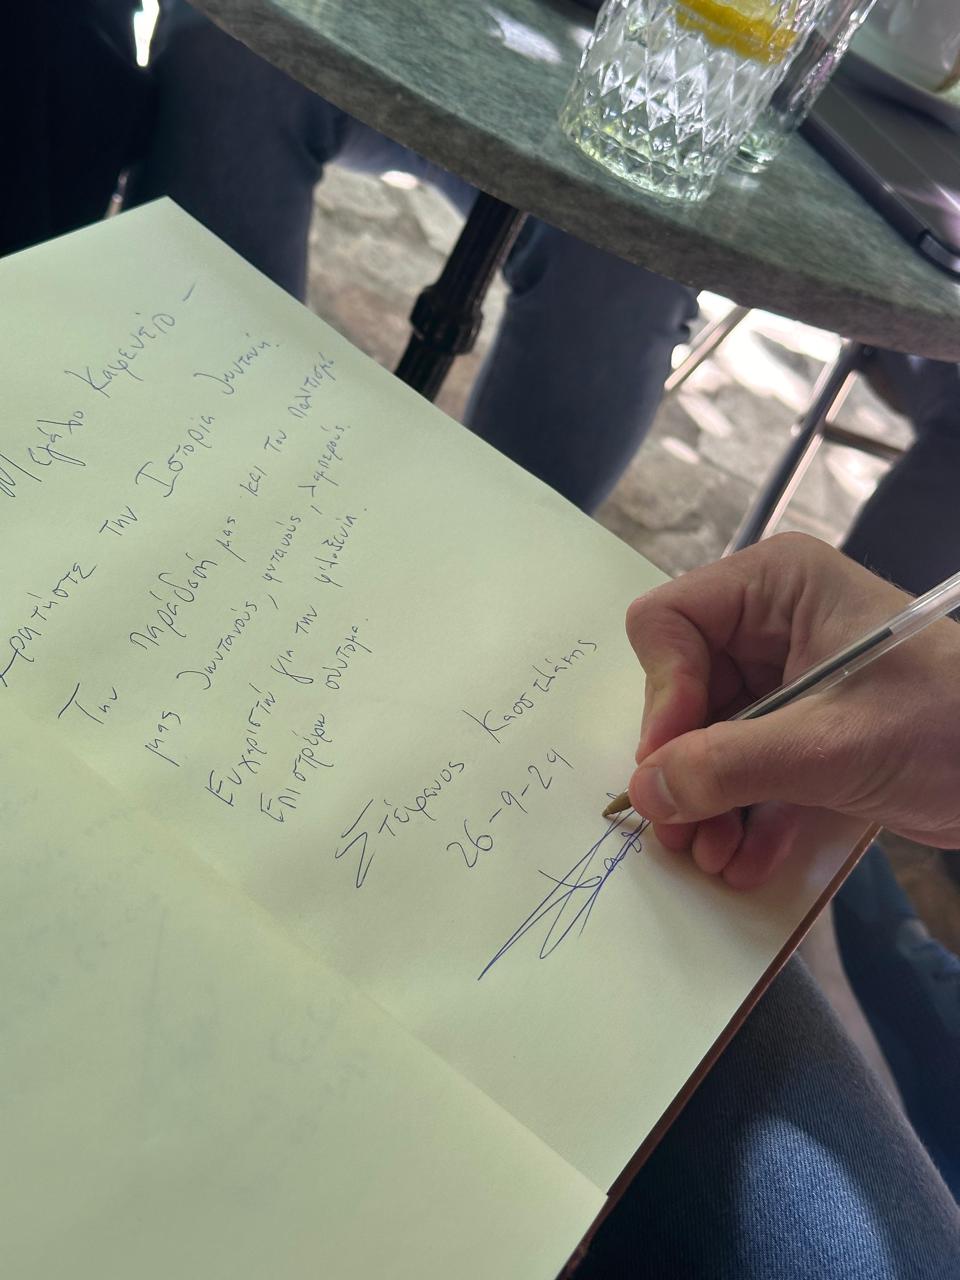 Μεγάλο Καφενείο –
Κρατήστε την Ιστορία ζωντανή.
Την Παράδοσή μας και τον Πολιτισμό
μας ζωντανούς, φωτεινούς, λαμπερούς.
Ευχαριστώ για την φιλοξενία.
Επιστρέφω σύντομα.
Στέφανος Κασσελάκης
26-9-24